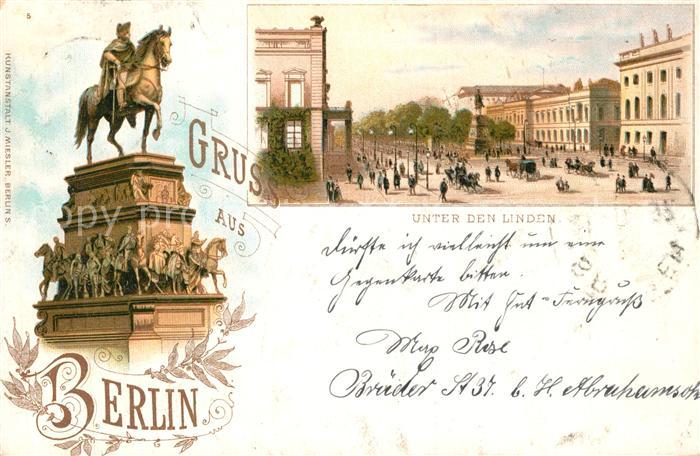 5
KUNSTANSTALT J. MIESLER, BERLIN S.
GRUSS
AUS
BERLIN
UNTER DEN LINDEN.
Dürfte ich vielleicht um eine
Gegenkarte bitten.
Mit Gut-Ferngruß
Max Rose
Brüder St 37. b. H. Abrahamsohn